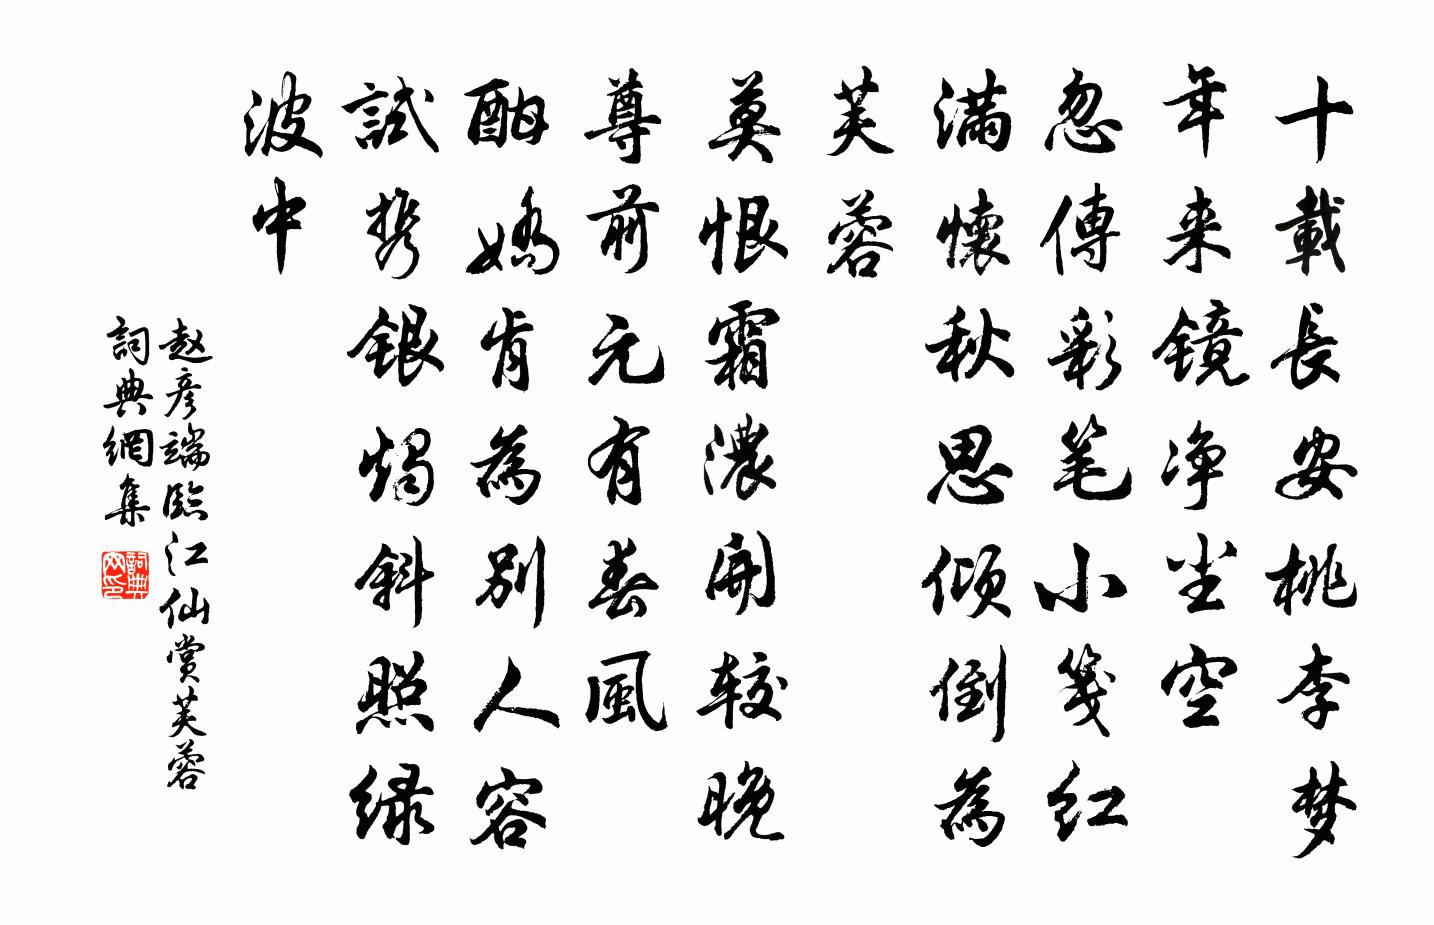 十載長安桃李梦
年来镜净尘空
忽傳彩笔小笺红
满懷秋思倾倒為
芙蓉
莫恨霜濃開较晚
尊前元有春風
酣嬌肯為别人容
試携銀燭斜照緑
波中
赵彦端臨江仙赏芙蓉
詞典網集
詞典网印